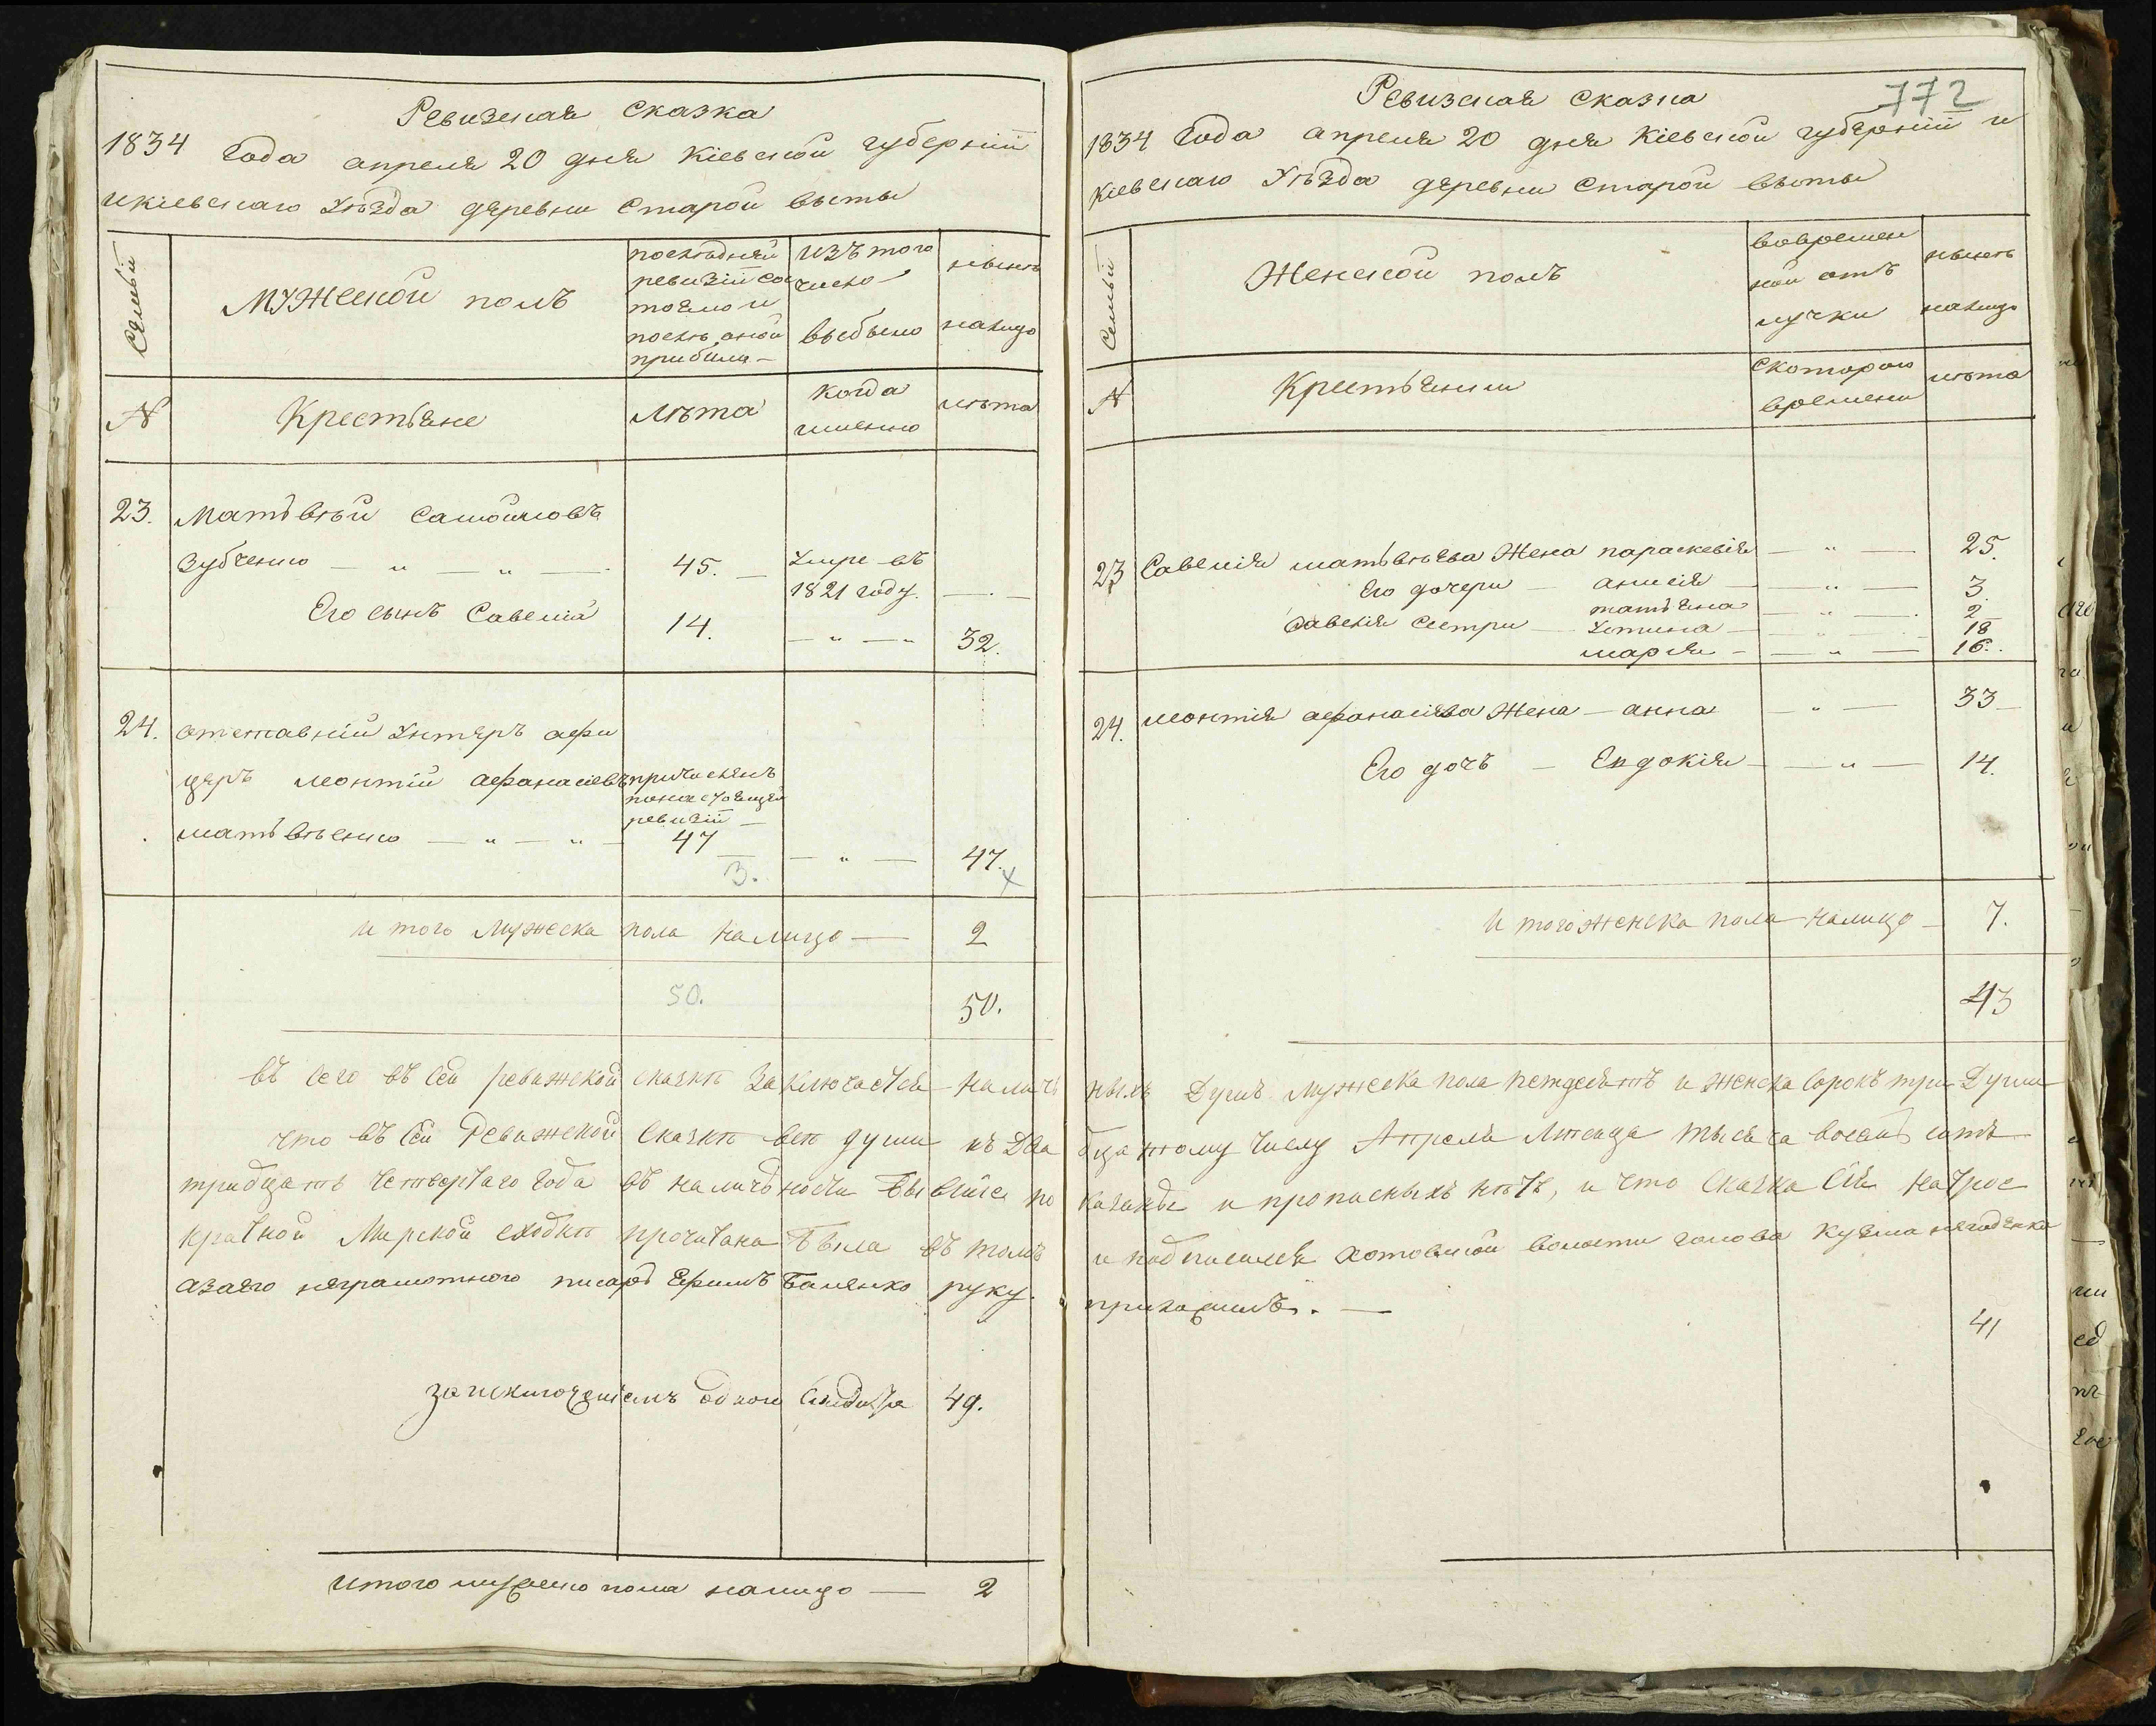 Ревизская сказка
1834 Года апреля 20 дня Кіевской губерніи
и кіевскаго Уѣзда деревни Старой Выты
Семьи
Мужской полъ
последней ревизіи состояло и послѣ оной прибыло
изъ того число выбыло
нынѣ налицо
№
Крестьяне
лѣта
когда именно
лѣта
23. Матьвѣй Самойловъ
Зубченко — " — " — 45. — Умре въ
1821 году. — . —
Его сынъ Савелій 14. — " — " 32.
24. отставній Унтеръ афи
церъ леонтій афанасіевъ причисленъ
по настоящей
ревизіи —
матьвѣенко — " — " — 47 — " — 47.
3.
и того Мужеска пола На лицо — 2
50. 50.
въ сего въ сей ревижской сказкѣ заключается налич
что въ Сей Ревижской Сказкѣ всѣ души къ Два
тридцать четвертаго Года въ наличности бывшіе по
кратной Мирской сходкѣ прочитана Была въ томъ
азаего неграмотного писарь Ефимъ Баленко руку.
за исключеніемъ одного 49.
итого мужеско пола налицо — 2
772
Ревизская сказка
1834 Года апреля 20 дня Кіевской губерніи и
Кіевскаго Уѣзда деревни Старой Выты
Семьи
Женской полъ
вовремен
ной отъ
лучки
нынѣ
налицо
№
Крестьянки
Скотораго
времени
лѣта
23 Савелія матьвѣева Жена параскевія — " — 25.
Его дочери — анисія — " — 3.
татьяна — " — 2
Савелія Сестри — Устина — " — 18
марья — — " — 16.
24. леонтія афанасіева Жена — анна — " — 33
Его дочь — Евдокія — — " — 14.
И того женска пола налицо — 7.
43
ныхъ Душъ Мужеска пола петдесятъ и женска Сорокъ три Души
дцатому числу Апреля Месяца тысяча восемь сотъ
казанды и прописныхъ нѣтъ, и что Сказка Сія на трое
и подписался хотовской волости голова Кузма
приложилъ. —
41